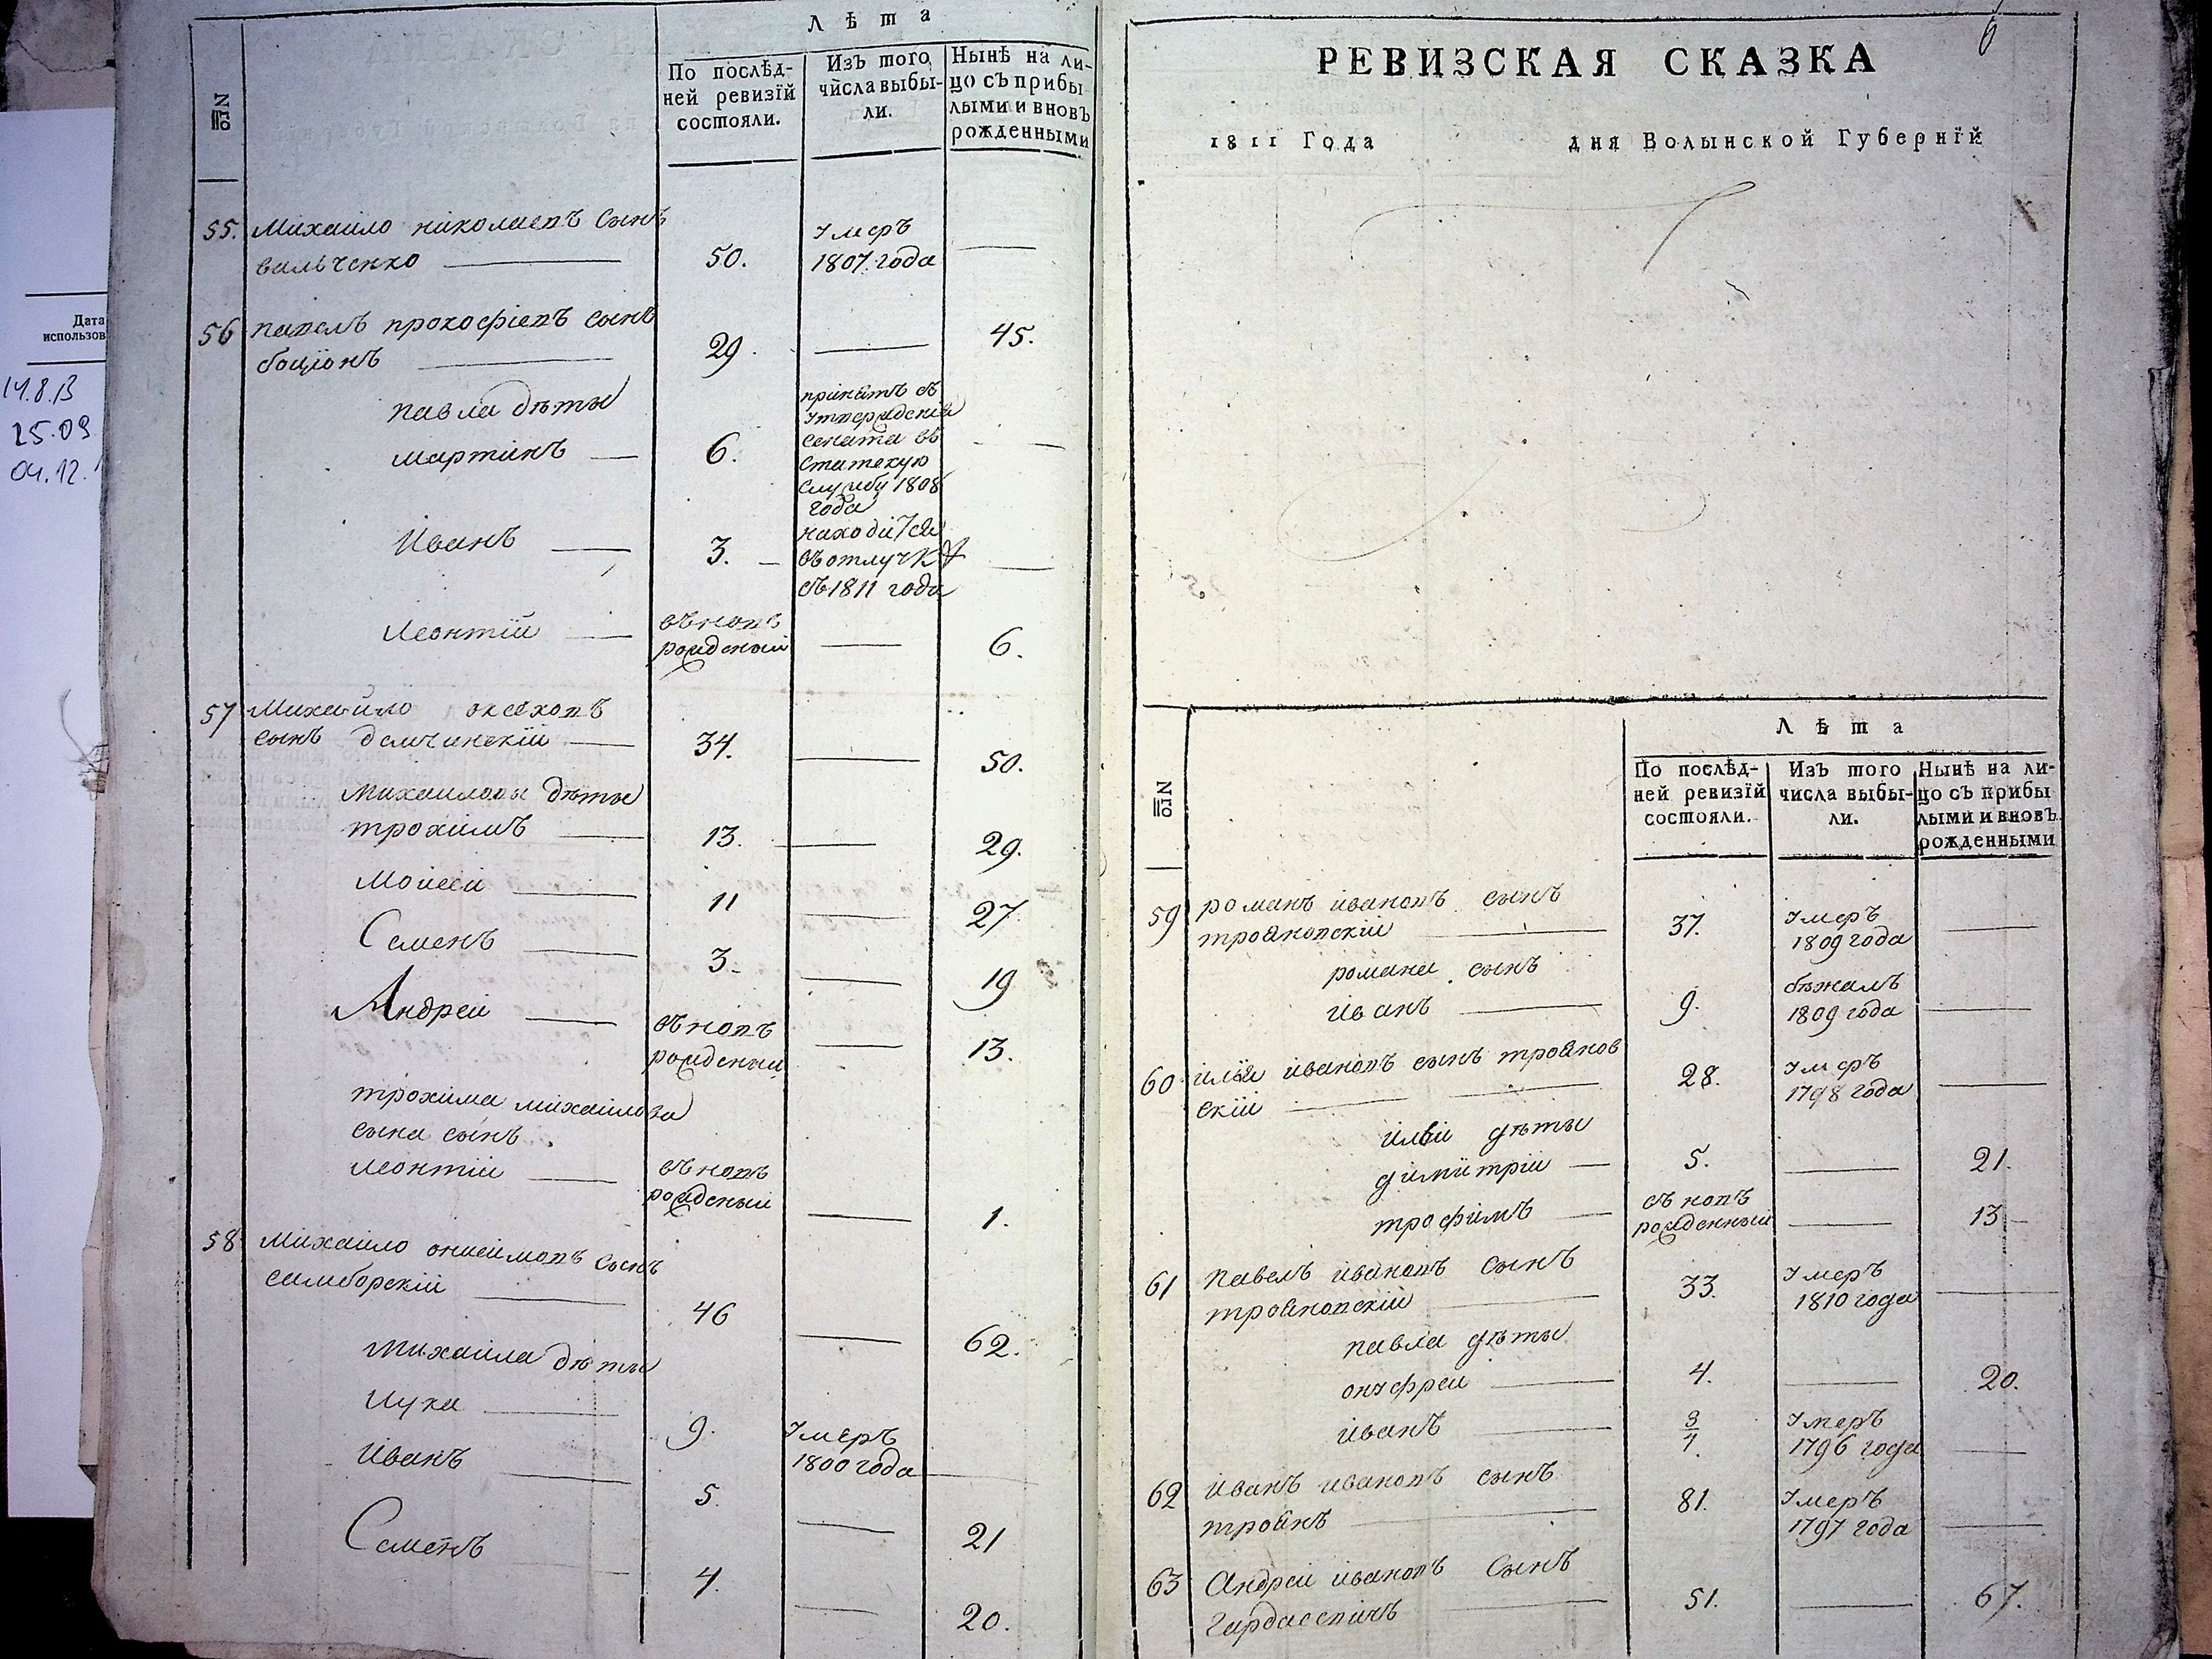 Лѣта
№
По послѣд-
ней ревизїй
состояли.
Изъ того
числа выбы-
ли.
Нынѣ на ли-
цо съ прибы
лыми и вновь
рожденными
55. Михайло николаевъ Сынъ
вальченко — 50. Умеръ 1807. года —
56 павелъ прокофіевъ сынъ
боціонъ — 29. — 45.
павла дѣты
мартинъ — 6. принятъ съ
утвержденія
сената въ
статскую
службу 1808
года —
Иванъ — 3. — находітся
въ отлучкѣ
съ 1811 года —
Леонтїй — вновъ
рожденый — 6.
57 Михайло
сынъ демчинскїй — 34. — 50.
Михаиловы дѣты
трохимъ — 13. — 29.
Моисей — 11 — 27
Семенъ — 3. — 19
Андрей — вновъ
рожденый — 13.
трохима михаилова
сына сынъ
леонтїй — вновъ
рожденый — 1.
58 Михайло онисимовъ сынъ
самборскїй — 46 — 62.
михаила дѣты
Лука — 9. Умеръ
1800 года —
Иванъ — 5. — 21
Семенъ — 4. — 20.
6
РЕВИЗСКАЯ СКАЗКА
1811 Года дня Волынской Губернїй
Лѣта
№
По послѣд-
ней ревизїй
состояли.
Изъ того
числа выбы-
ли.
Нынѣ на ли-
цо съ прибы
лыми и вновь
рожденными
59 романъ ивановъ сынъ
трояновскїй — 37. Умеръ
1809 года —
романа сынъ
иванъ — 9. бѣжалъ
1809 года —
60 илїя ивановъ сынъ троянов
скїй — 28. Умеръ
1798 года —
илїи дѣты
димїтрїй — 5. — 21.
трофимъ — вновъ
рожденный — 13 —
61 павелъ ивановъ сынъ
трояновскїй — 33. Умеръ
1810 года —
павла дѣты
онуфрей — 4. — 20.
иванъ — 3/4. Умеръ
1796 года —
62 иванъ ивановъ сынъ
троянъ — 81. Умеръ
1797 года —
63 Андрей ивановъ Сынъ
Гардасевичъ — 51. — 67.
Дата
использов
14.8.13
25.09
04.12.